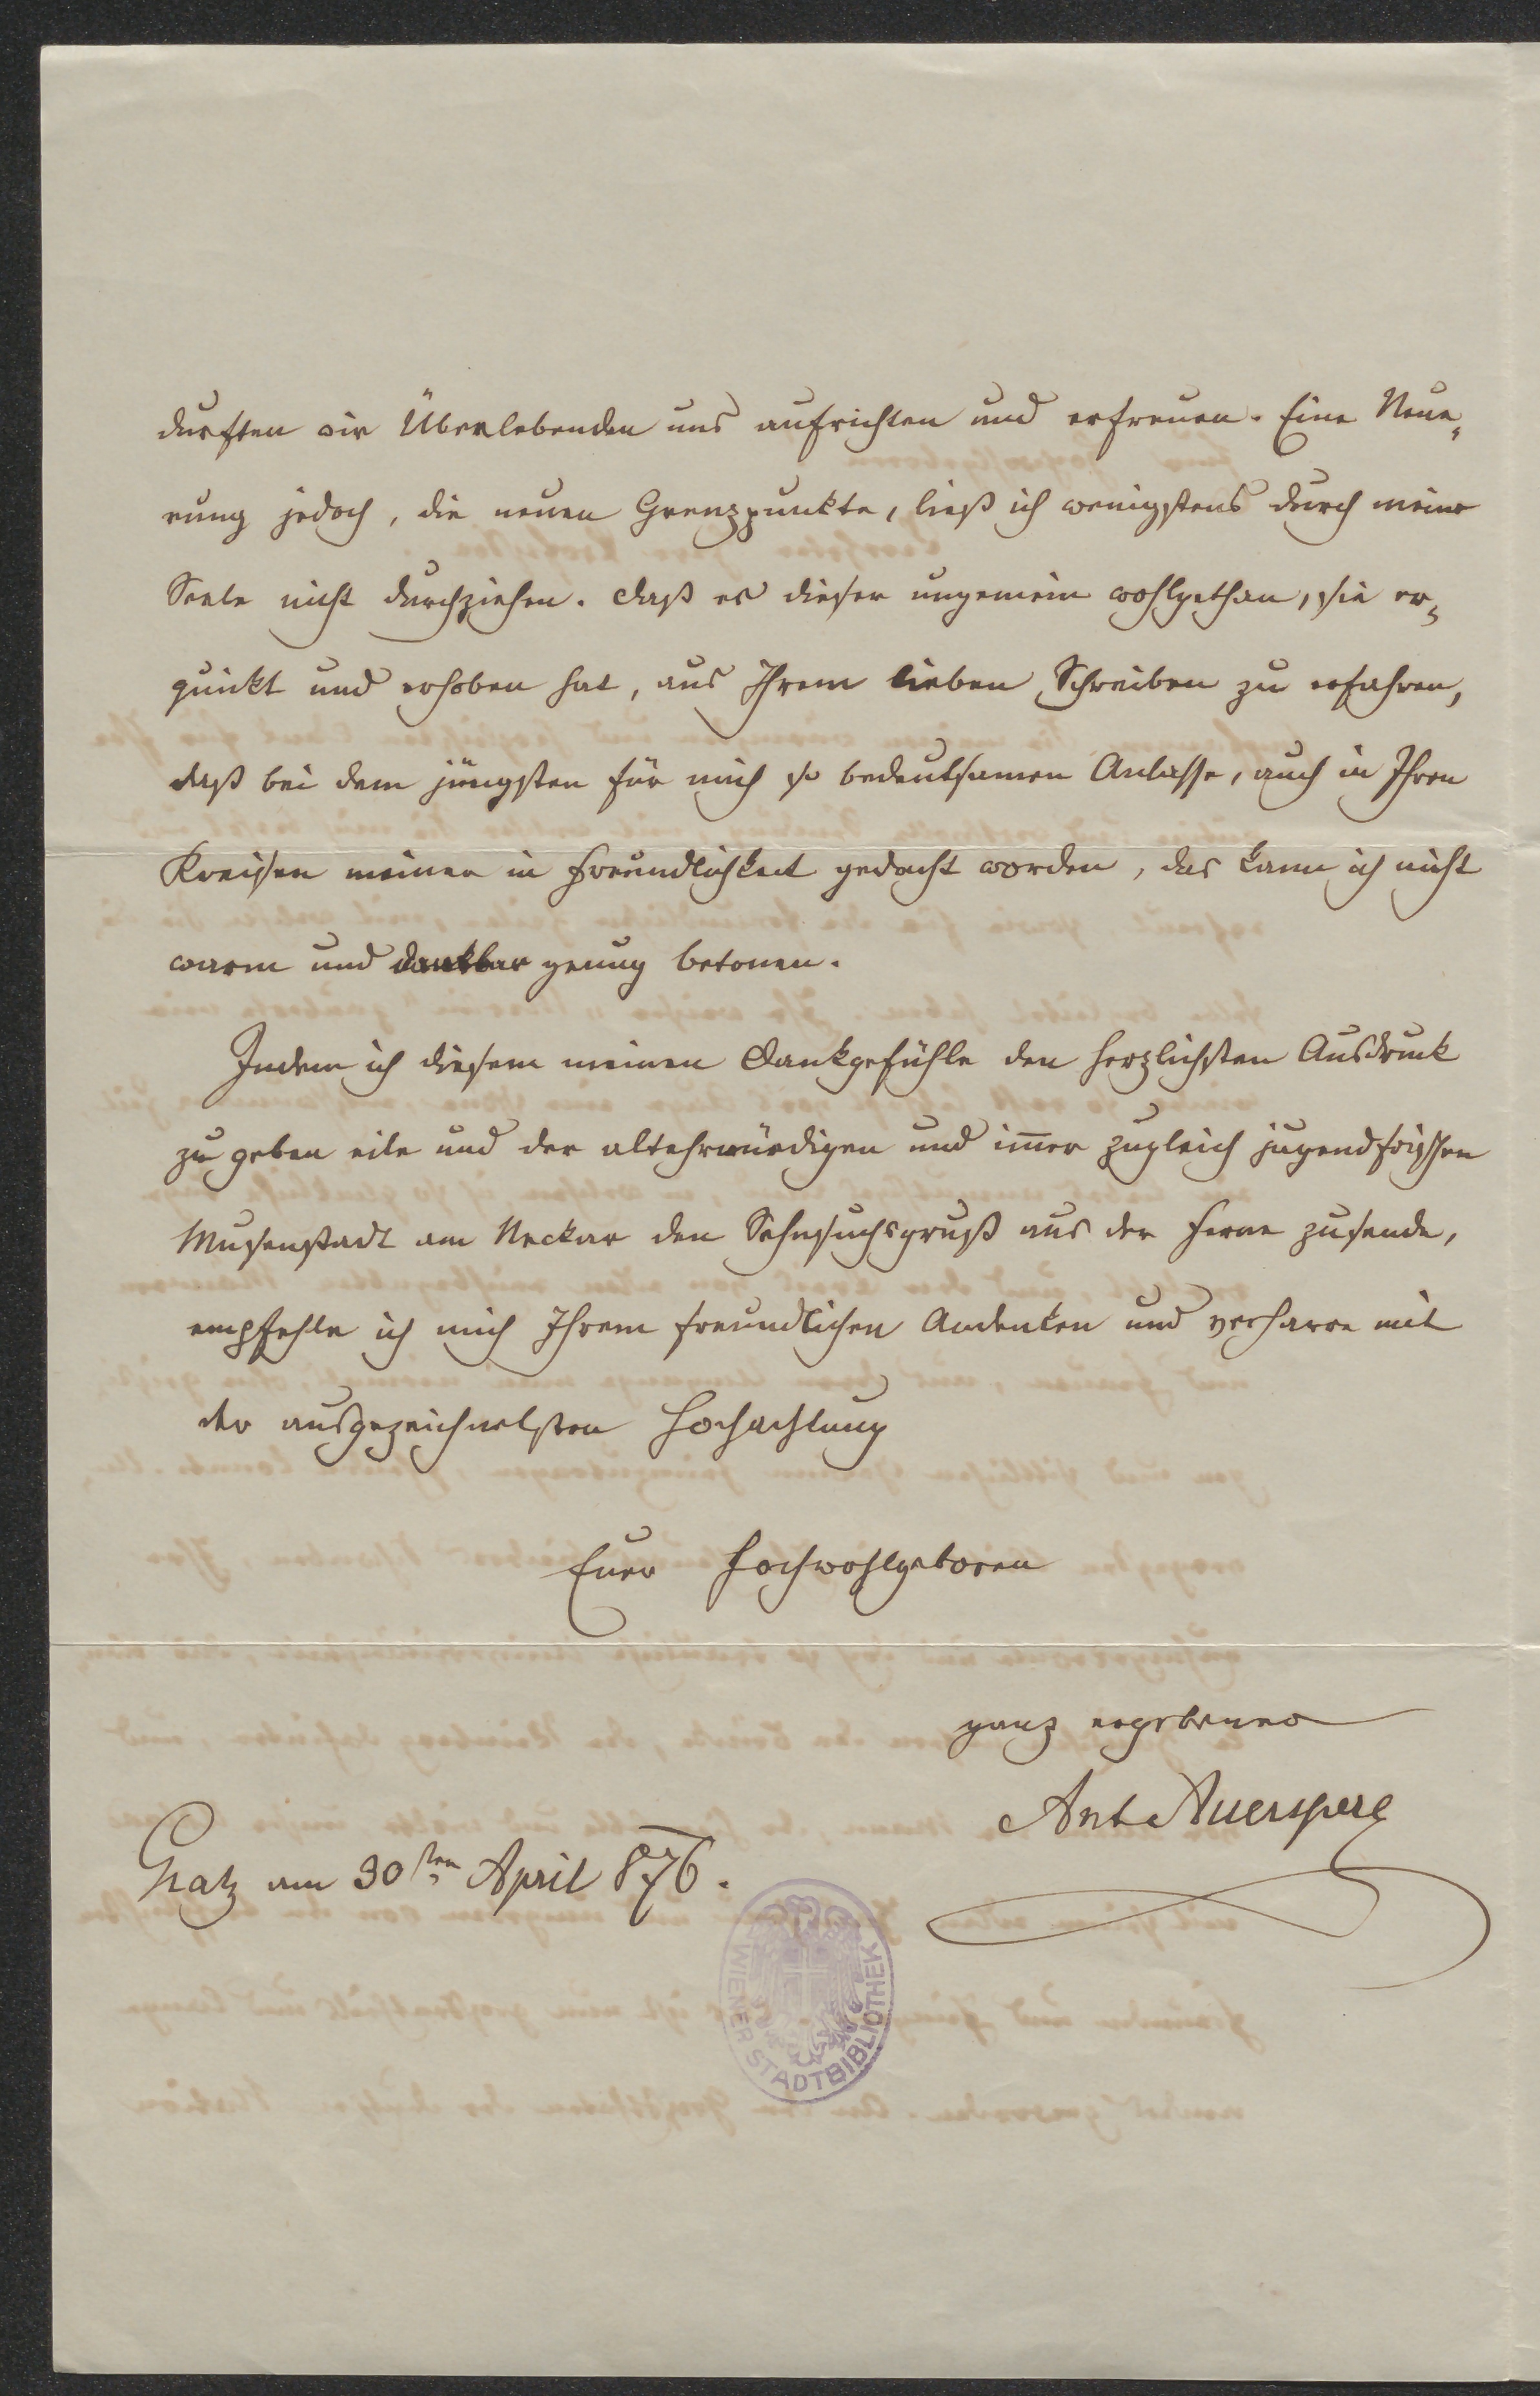 durften wir Überlebenden uns aufrichten und erfreuen. Eine Neue„
rung jedoch, die neuen Grenzpunkte, ließ ich wenigstens durch meine
Seele nicht durchziehen. Daß es dieser ungemein wohlgethan, sie er„
quickt und erhoben hat, aus Ihrem lieben Schreiben zu erfahren,
daß bei dem jüngsten für mich so bedeutsamen Anlasse, auch in Ihren
Kreisen meiner in Freundlichkeit gedacht worden, das kann ich nicht
warm und dankbar genug betonen.
Indem ich diesem meinen Dankgefühle den herzlichsten Ausdruck
zu geben eile und der altehrwürdigen und im̅er zugleich jugendfrischen
Musenstadt am Neckar den Sehnsuchsgruß aus der Ferne zusende,
empfehle ich mich Ihrem freundlichen Andenken und verharre mit
der ausgezeichnetsten Hochachtung
Euer Hochwohlgeboren
ganz ergebener
Ant Auersperg
Gratz am 30ten April 876.
WIENER STADTBIBLIOTHEK